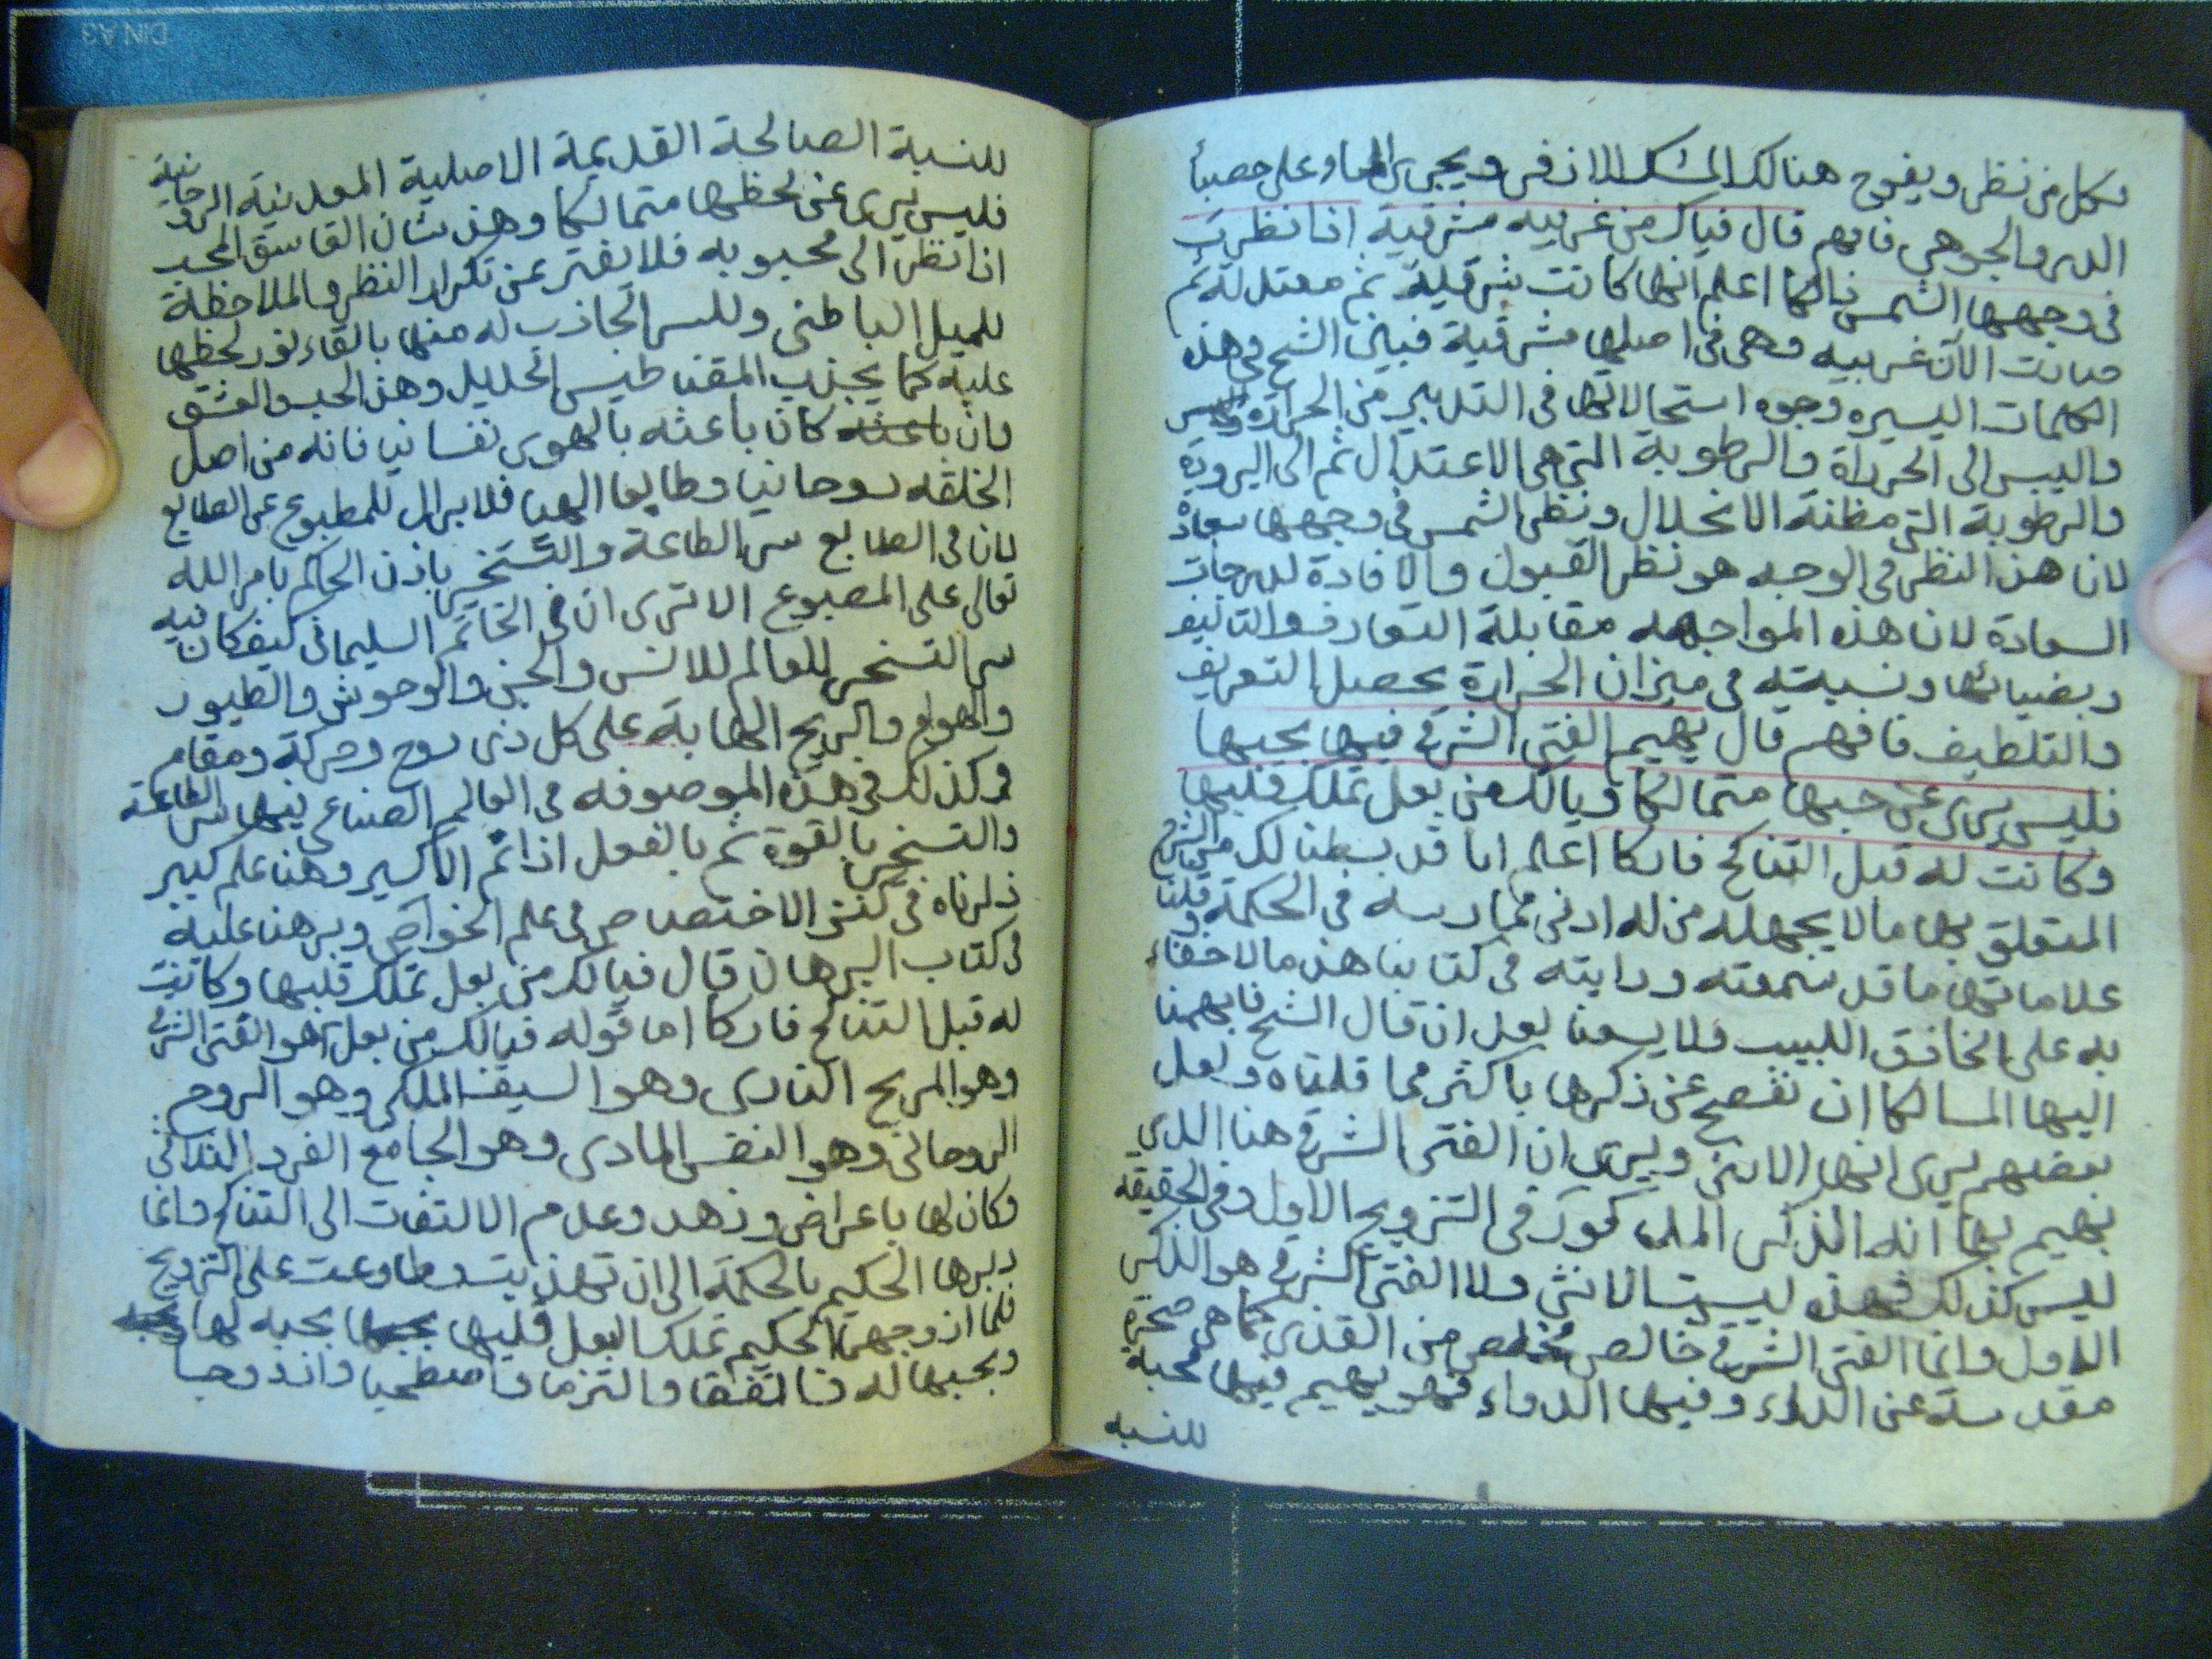 لكل من نظر ويفوح هنالك المسك الاذفر ويجري الماء على حصباء
الدر والجوهر فافهم قال فيالك من غربيه مشرقية اذا نظرت
في وجهها الشمس فالكا اعلم انها كانت شرقية ثم معتدلة ثم
صارت الآن غربيه وهي في اصلها مشرقية فبين الشيخ في هذه
الكلمات اليسيره وجوه استحالاتها في التدبير من الحرارة واليبس
واليبس الى الحرارة والرطوبة التي هي الاعتدال ثم الى البرودة
والرطوبة التي مظنة الانحلال ونظر الشمس في وجهها سعادة
لان هذا النظر في الوجه هو نظر القبول والافادة لدرجات
السعادة لان هذه المواجهه مقابلة التعارف والتاليف
وبضيائها ونسبته في ميزان الحرارة يحصل التعريف
والتلطيف فافهم قال يهيم الفتى الشرقي فيها بحبها
فليس يرى عن حبها متمالكا فيالك من بعل تملك قلبها
وكانت له قبل التناكح فاركا اعلم انا قد بسطنا لك من الشرح
المتعلق بها ما لا يجهله من له ادنى ممارسه في الحكمة وقلنا
علاماتها ما قد سمعته ورايته في كتابنا هذا ما لا خفاء
به على الحاذق اللبيب فلا يسعنا بعد ان قال الشيخ فابهمنا
اليها المسالكا ان نفصح عن ذكرها باكثر مما قلناه ولعل
بعضهم يرى انها الانثى ويرى ان الفتى الشرقي هنا الذي
يهيم بها انه الذكر المذكور في التزويج الاول وفي الحقيقة
ليس كذلك فهذه ليست الانثى ولا الفتى الشرقي هو الذكر
الاول وانما الفتى الشرقي خالص مخلص من القذى كما هي صخرة
مقدسة عن الداء وفيها الدواء فهو يهيم فيها محبة
للنسبه
للنسبة الصالحة القديمة الاصلية المعدنية الروحانية
فليس يرى عن لحظها متمالكا وهذا شان العاشق المجد
اذا نظر الى محبوبه فلا يفتر عن تكرار النظر والملاحظة
للميل الباطني وللسر الجاذب له منها بالقاء نور لحظها
عليه كما يجذب المقناطيس الحديد وهذا الحب والعشق
وان كان باعثه بالهوى نفسانيا فانه من اصل
الخلقه روحانيا وطايعا الهيا فلا يزال للمطبوع عن الطابع
لان في الطابع سر الطاعة والتسخير باذن الحاكم بامر الله
تعالى على المصبوع الا ترى ان في الخاتم السليماني كيف كان فيه
سر التسخير للعالم للانس والجن والوحوش والطيور
والهوام والريح المهابة على كل ذي روح وحركة ومقام
وكذلك في هذه الموصوفه في العالم الصناعي فيها سر الطاعة
والتسخير بالقوة ثم بالفعل اذا تم الاكسير وهذا علم كبير
ذكرناه في كنز الاختصاص في علم الخواص وبرهنا عليه
في كتاب البرهان قال فيالك من بعل تملك قلبها وكانت
له قبل التناكح فاركا اما قوله فيالك من بعل هو الفتى الشرقي
وهو المريخ الناري وهو السيف الملكي وهو الروح
الروحاني وهو النفس المادي وهو الجامع الفرد الثلاثي
وكان لها باعراض وزهد وعدم الالتفات الى التناكح وانما
دبرها الحكيم بالحكمة الى ان تهذبت وطاوعت على التزويج
فلما ازدوجهما الحكيم تملك البعل قلبها بحبه لها
وبحبها له فاتفقا والتزما واصطحبا وازدوجا